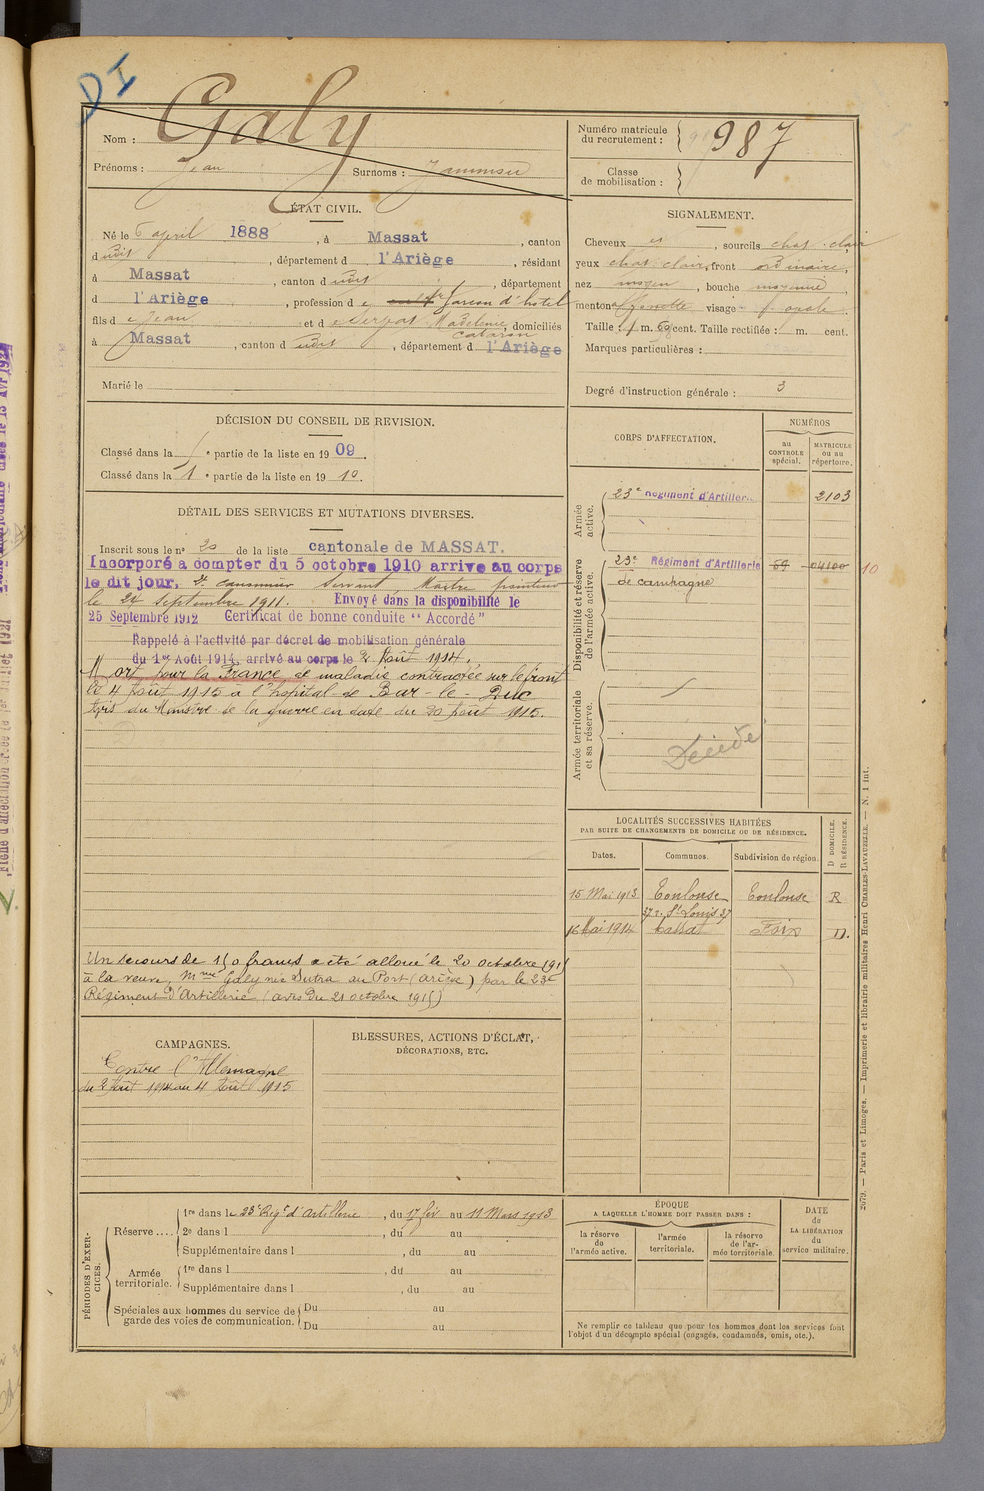 DI
Nom : Galy
Prénoms : Jean Surnoms :
Numéro matricule du recrutement : 987
Classe de mobilisation :
ÉTAT CIVIL.
Né le 6 april 1888, à Massat, canton
dudit, département d l'Ariège, résidant
à Massat, canton dudit, département
d l'Ariège, profession d e garcon d'hotel
fils d e Jean et d e Serpat Madeleine, domiciliés
à Massat, canton d udit, département d l'Ariège
Marié le
SIGNALEMENT.
Cheveux et, sourcils chat. clair
yeux chat. clair, front ordinaire,
nez moyen, bouche moyenne,
menton visage ovale
Taille : 1 m. cent. Taille rectifiée : m. cent.
Marques particulières :
Degré d'instruction générale : 3
DÉCISION DU CONSEIL DE REVISION.
Classé dans la 1 e partie de la liste en 1909.
Classé dans la 1 e partie de la liste en 1910.
DÉTAIL DES SERVICES ET MUTATIONS DIVERSES.
Inscrit sous le no 20 de la liste cantonale de MASSAT.
Incorporé a compter du 5 octobre 1910 arrive au corps
le dit jour. 2e canonnier servant Maitre pointeur
le 24 Septembre 1911. Envoyé dans la disponibilité le
25 Septembre 1912 Certificat de bonne conduite "Accordé"
Rappelé à l'activité par décret de mobilisation générale
du 1er Août 1914, arrivé au corps le 2 Août 1914.
Mort pour la France de maladie contractée sur le front
le 4 Août 1915 a l'hopital de Bar-le-Duc
Avis du Ministre de la guerre en date du 20 Août 1915.
Un secours de 150 francs a été alloué le 20 octobre 1915
à la veuve, Mme Galy née Dutra au Port (Ariège) par le 23e
Régiment d'Artillerie (avis du 21 octobre 1915)
CORPS D'AFFECTATION.
NUMÉROS
au CONTROLE spécial.
MATRICULE ou au répertoire.
Armée active.
23e Régiment d'Artillerie 2103
Disponibilité et réserve de l'armée active.
23e Régiment d'Artillerie 59 04100 10
de campagne
Armée territoriale et sa réserve.
Décédé
LOCALITÉS SUCCESSIVES HABITÉES
PAR SUITE DE CHANGEMENTS DE DOMICILE OU DE RÉSIDENCE.
D DOMICILE.
R RÉSIDENCE.
Dates. Communes. Subdivision de région.
15 Mai 1913 Toulouse Toulouse R
37 r. St Louis 37
16 Mai 1914 Massat Foix D.
CAMPAGNES.
Contre l'Allemagne
du 2 Août 1914 au 4 Août 1915
BLESSURES, ACTIONS D'ÉCLAT,
DÉCORATIONS, ETC.
PÉRIODES D'EXERCICES.
Réserve....
1re dans le 23e Regt d'Artillerie, du 17 fév au 11 Mars 1913
2e dans l , du au
Supplémentaire dans l , du au
Armée territoriale.
1re dans l , du au
Supplémentaire dans l , du au
Spéciales aux hommes du service de garde des voies de communication.
Du au
Du au
ÉPOQUE
A LAQUELLE L'HOMME DOIT PASSER DANS :
la réserve de l'armée active.
l'armée territoriale.
la réserve de l'armée territoriale.
DATE de LA LIBÉRATION du service militaire.
Ne remplir ce tableau que pour les hommes dont les services font
l'objet d'un décompte spécial (engagés, condamnés, omis, etc.).
2679. — Paris et Limoges. — Imprimerie et librairie militaires Henri CHARLES-LAVAUZELLE. — N. 1 int.